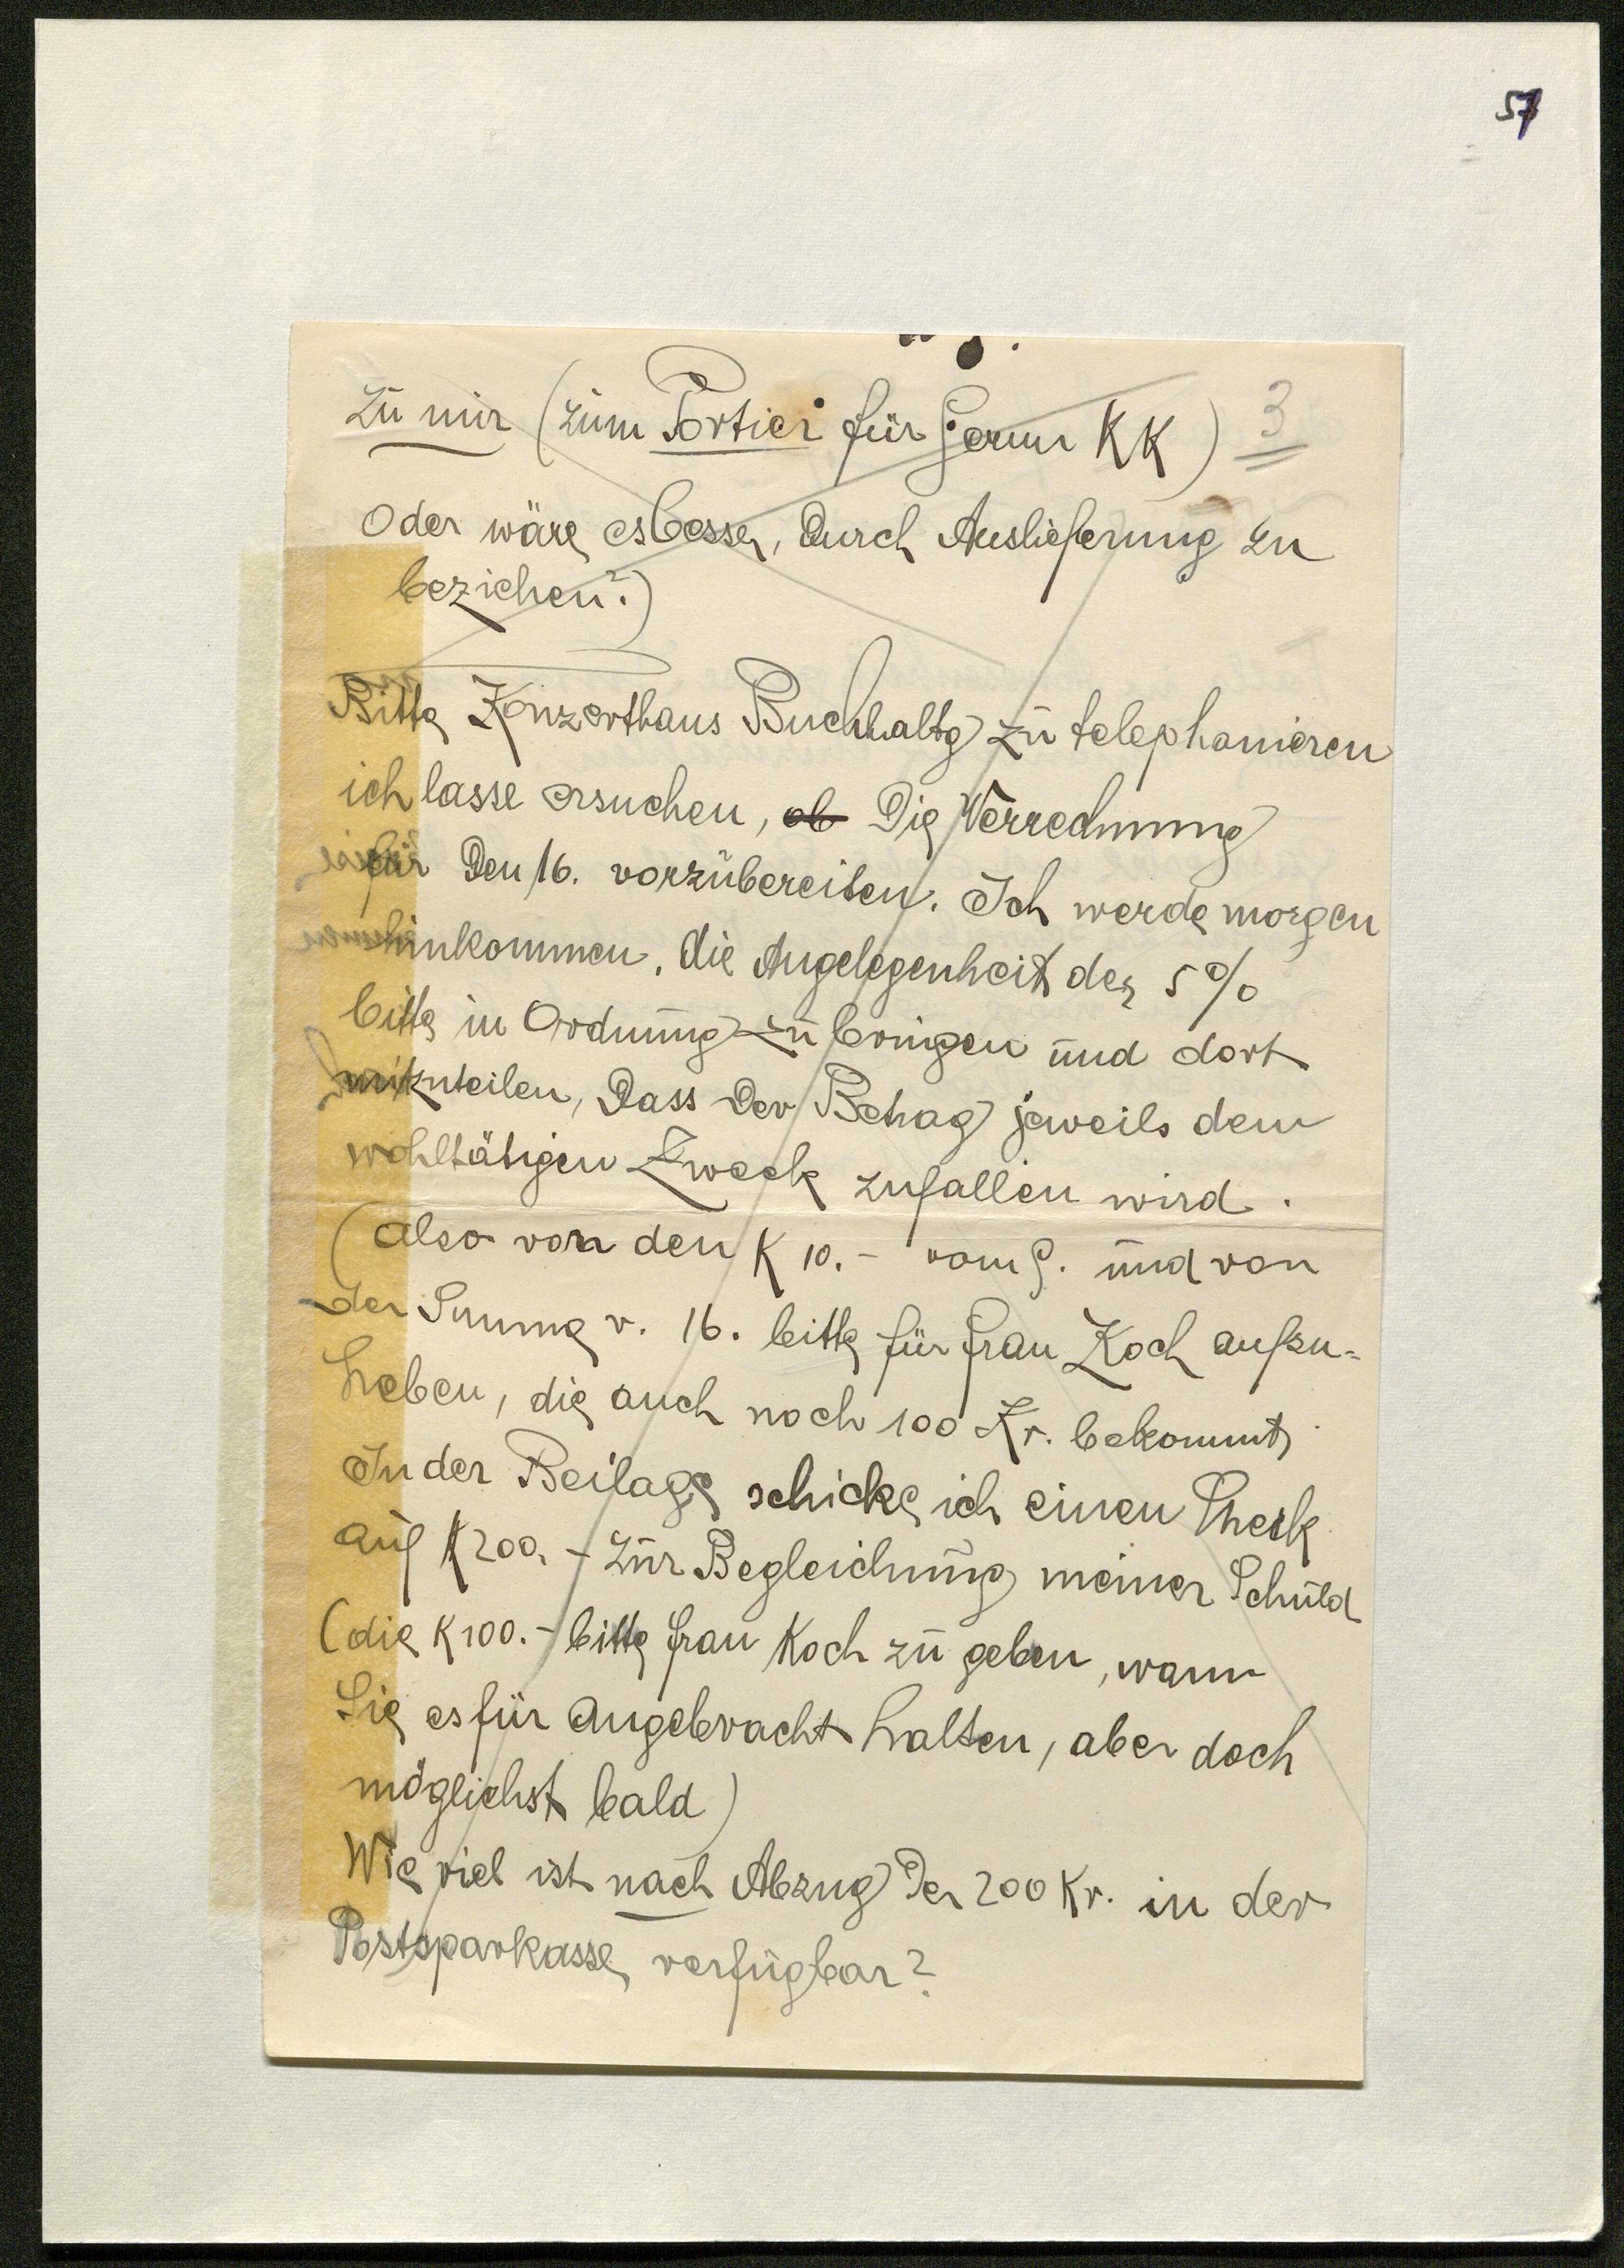 57
zu mir (zum Portier für Herrn KK) 3
Oder wäre es besser, durch Auslieferung zu
beziehen?)
Bitte Konzerthaus Buchhaltg zu telephonieren
ich lasse ersuchen, ob die Verrechnung
für den 16. vorzubereiten. Ich werde morgen
hinkommen. Die Angelegenheit der 5%
bitte in Ordnung zu bringen und dort
mitzuteilen, dass der Betrag jeweils dem
wohltätigen Zweck zufallen wird.
(Also von den K 10.– vom 9. und von
der Summe v. 16. bitte für Frau Koch aufzu=
heben, die auch noch 100 Kr. bekommt
In der Beilage schicke ich einen Check
auf K 200.– zur Begleichung meiner Schuld
(die K 100.– bitte Frau Koch zu geben, wann
Sie es für angebracht halten, aber doch
möglichst bald)
Wie viel ist nach Abzug der 200 Kr. in der
Postsparkasse verfügbar?